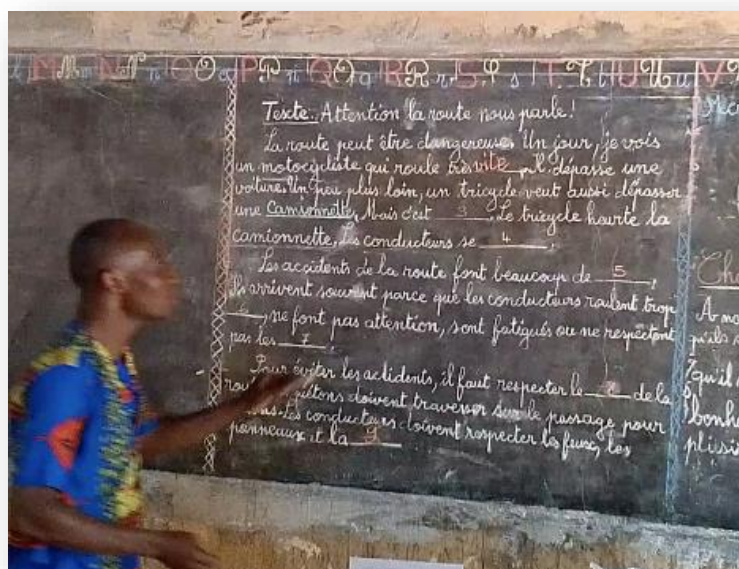 M m N n O o P p Q q R r S s T t U u V
Texte: Attention la route nous parle!
La route peut être dangereuse. Un jour, je vois
un motocycliste qui roule très vite. Il dépasse une
voiture. Un peu plus loin, un tricycle veut aussi dépasser
une camionnette, Mais c'est 3. Le tricycle heurte la
camionnette, Les conducteurs se 4.
Les accidents de la route font beaucoup de 5.
Ils arrivent souvent parce que les conducteurs roulent trop
6, ne font pas attention, sont fatigués ou ne respectent
pas les 7.
Pour éviter les accidents, il faut respecter le 8 de la
doivent traverser sur le passage pour
Les conducteurs doivent respecter les feux, les
panneaux et la 9
A
qu'il
plusi